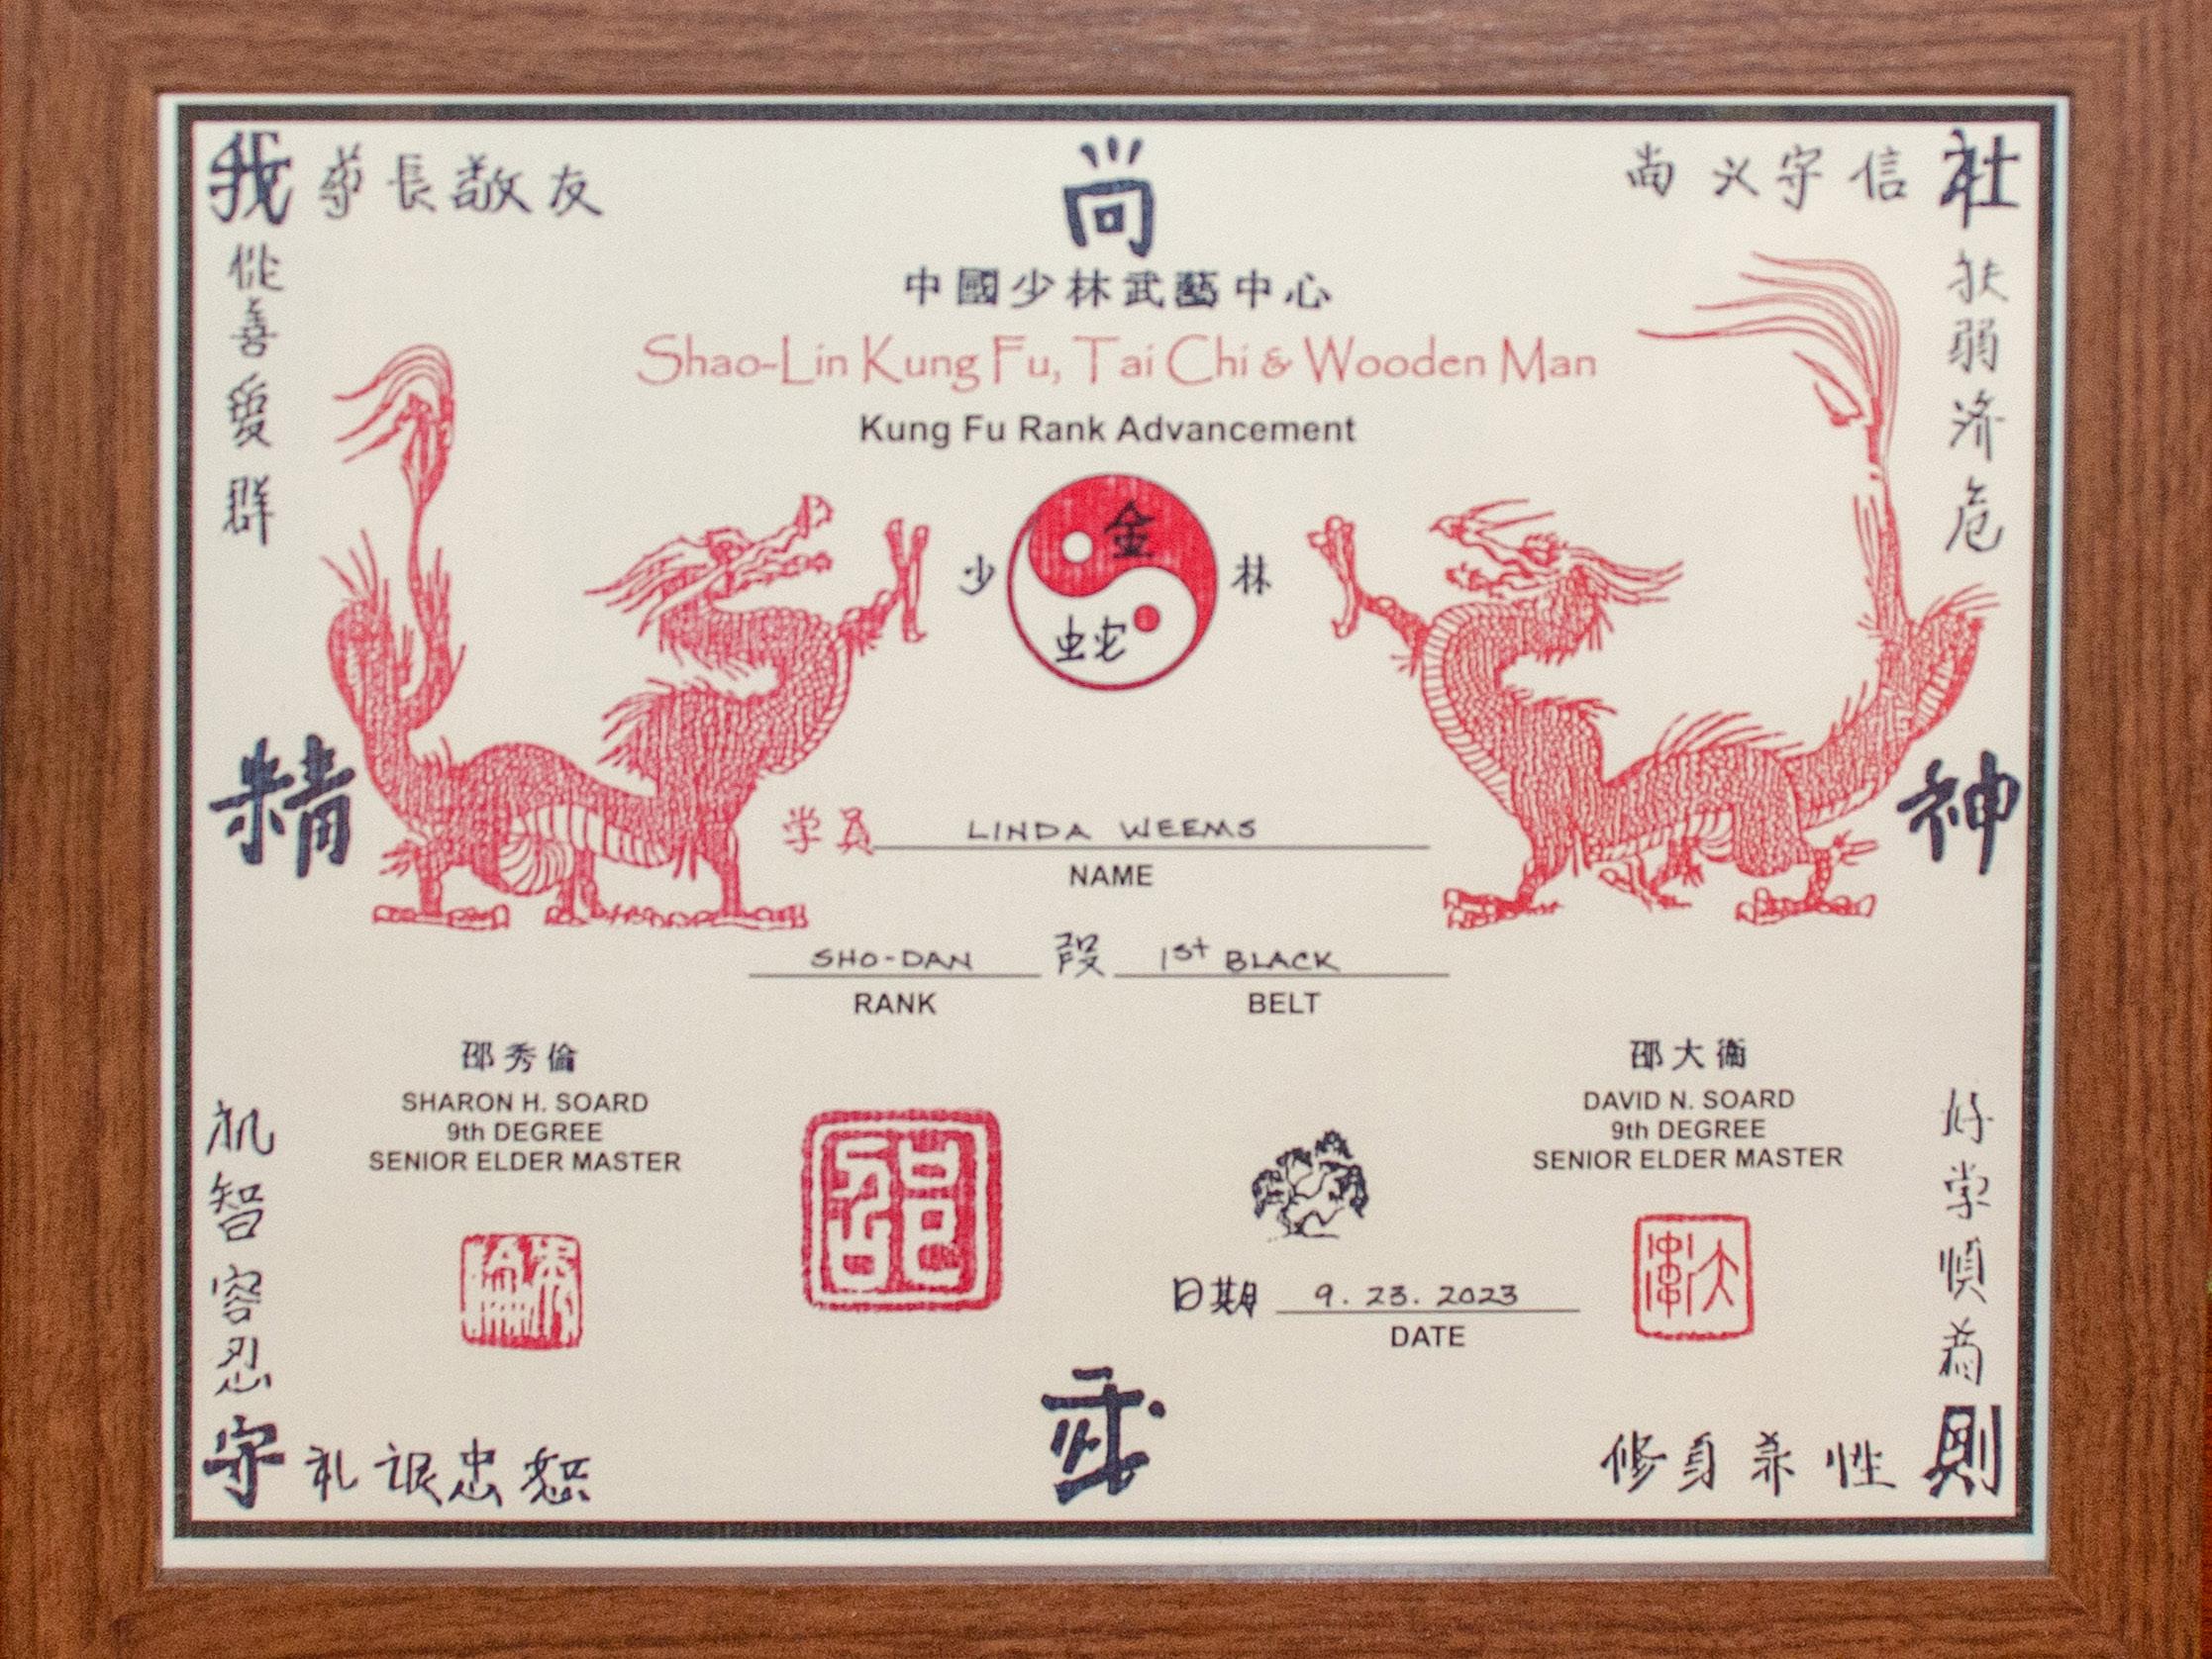 我 尊長敬友
尚
尚义守信 社
從善愛群
扶弱济危
中國少林武藝中心
Shao-Lin Kung Fu, Tai Chi & Wooden Man
Kung Fu Rank Advancement
金
少 林
蛇
精
神
学员 LINDA WEEMS
NAME
SHO-DAN 段 1st BLACK
RANK BELT
邵秀倫
SHARON H. SOARD
9th DEGREE
SENIOR ELDER MASTER
邵大衛
DAVID N. SOARD
9th DEGREE
SENIOR ELDER MASTER
机智容忍
日期 9.23.2023
DATE
武
守 礼诚忠恕
修身养性 則